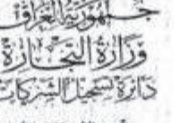 جمهورية العراق
وزارة التجارة
دائرة تسجيل الشركات